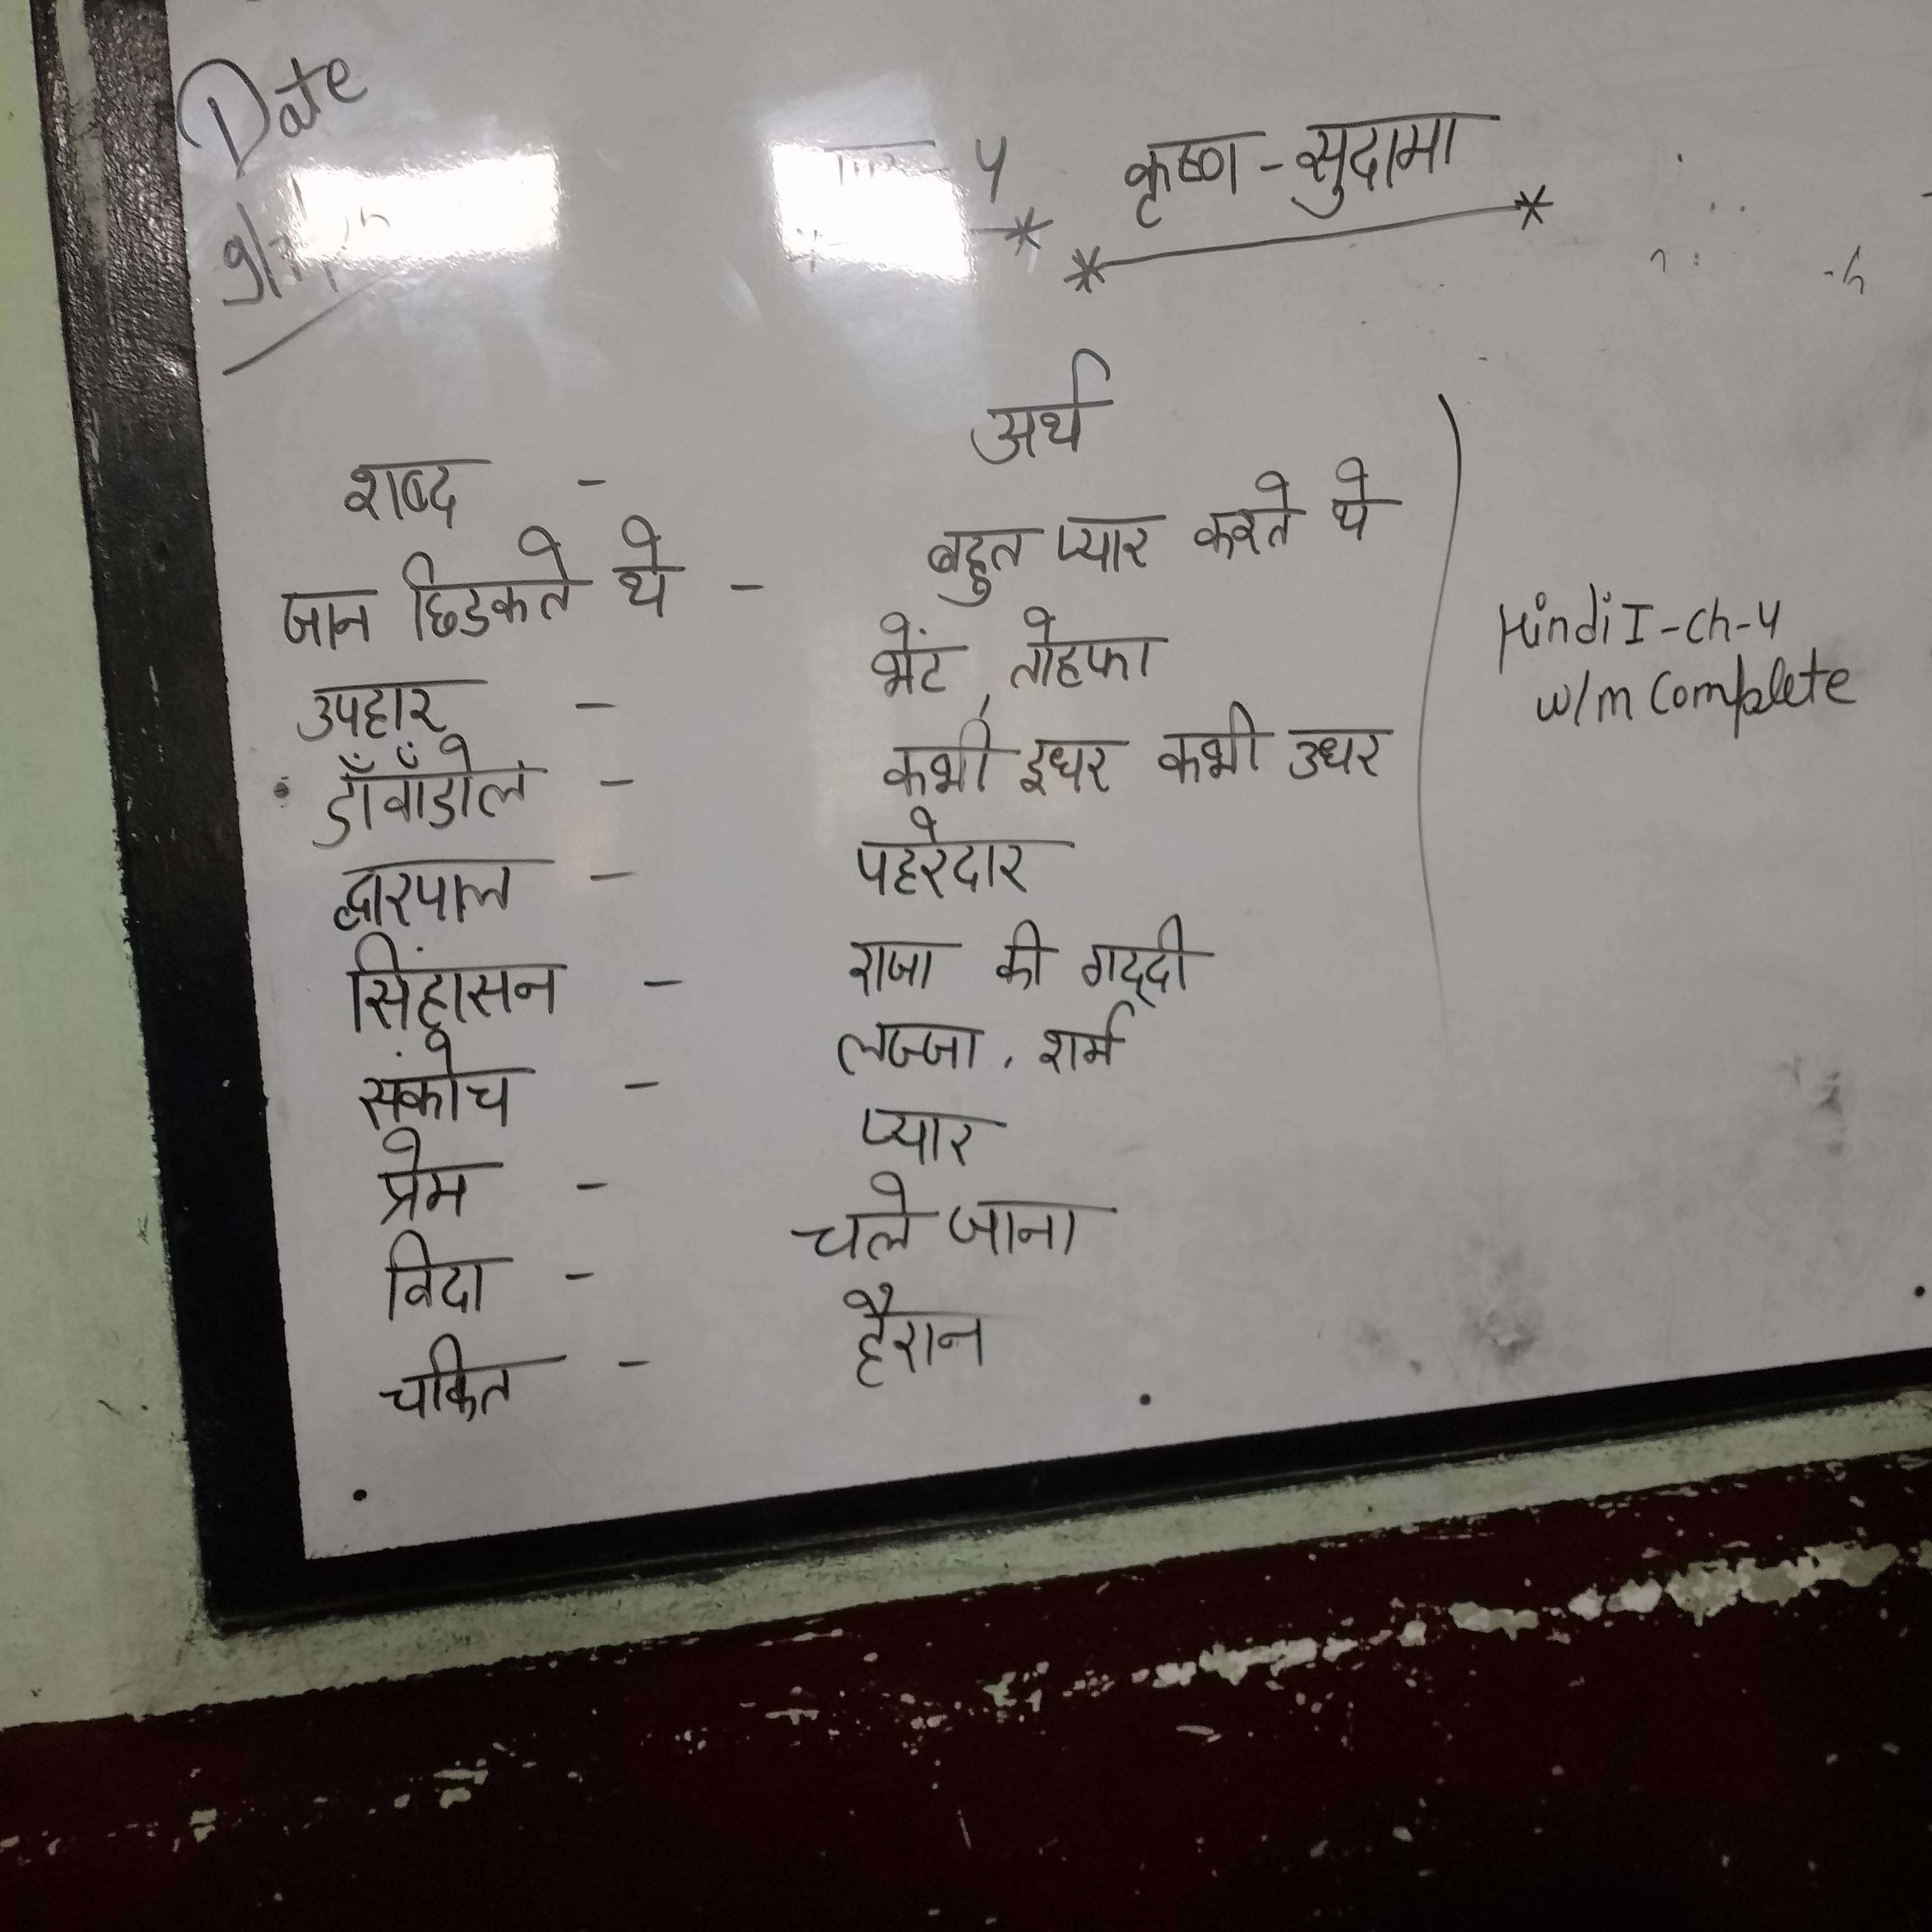 Date
4 कृष्ण-सुदामा
शब्द - अर्थ
जान छिडकते थे - बहुत प्यार करते थे
उपहार - भेंट, तोहफा
डाँवाँडोल - कभी इधर कभी उधर
द्वारपाल - पहरेदार
सिंहासन - राजा की गद्दी
संकोच - लज्जा, शर्म
प्रेम - प्यार
विदा - चले जाना
चकित - हैरान
Hindi I-ch-4
w/m Complete